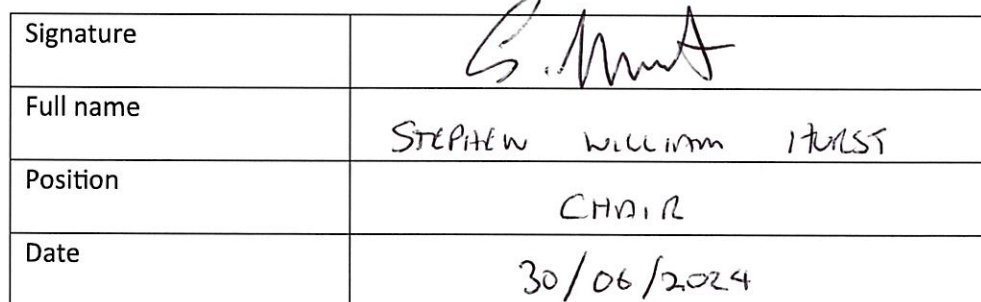 Signature S. Hurst
Full name STEPHEN WILLIAM HURST
Position CHAIR
Date 30/06/2024